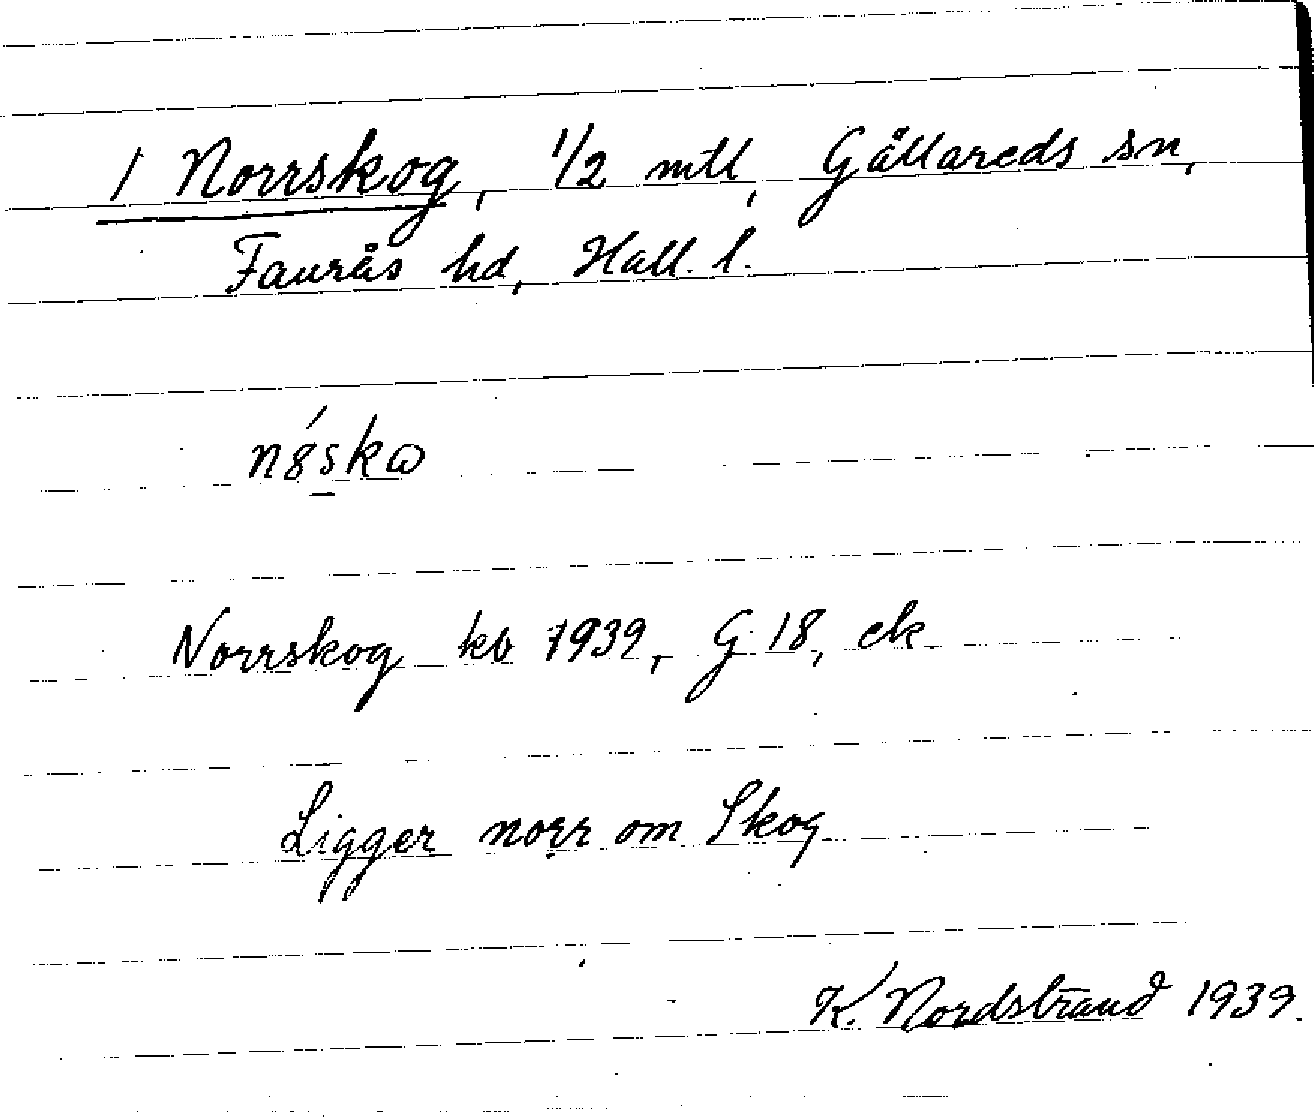 1 Norrskog, 1/2 mtl, Gällareds sn,
Faurås hd, Hall. l.
Norrskog kb 1939, G 18, ek
Ligger norr om Skog
K. Nordstrand 1939.